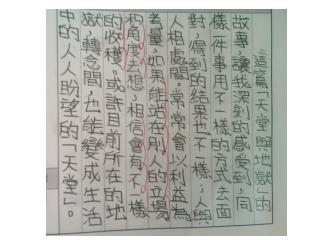 這篇「天堂與地獄」的
故事，讓我深刻的感受到，同
樣一件事用不一樣的方式去面
對，得到的結果也不一樣；人與
人相處間，常常會以利益為
考量，如果能站在別人的立場
和角度去想，相信會有不一樣
的收穫。或許目前所在的地
獄，轉念間，也能變成生活
中的人人盼望的「天堂」。